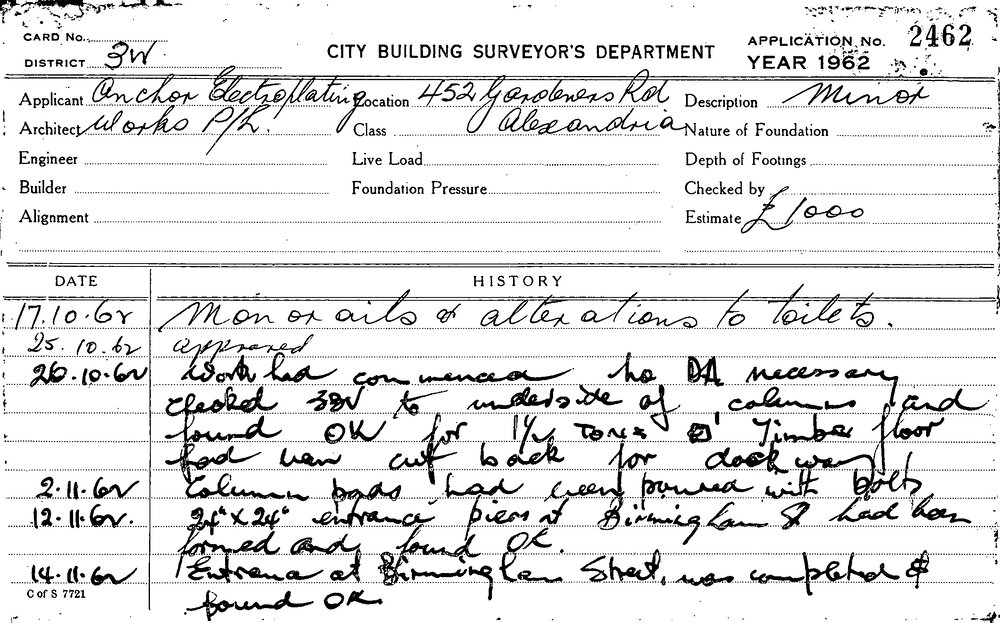 CARD No.
DISTRICT 3W
CITY BUILDING SURVEYOR'S DEPARTMENT
APPLICATION No. 2462
YEAR 1962
Applicant Anchor Electroplating Location 452 Gardeners Rd Description Minor
Architect Works P/L. Class Alexandria Nature of Foundation
Engineer Live Load Depth of Footings
Builder Foundation Pressure Checked by
Alignment Estimate £1000
DATE HISTORY
17.10.62 Monorails & alterations to toilets.
25.10.62 approved
26.10.62 Work had commenced no DA necessary
checked to underside of columns and
found OK for 1½ Tons Timber floor
had been cut back for dock way
2.11.62 Column pads had been poured with bolts
12.11.62. 24" x 24" entrance piers at Birmingham St had been
formed and found OK.
14.11.62 Entrance at Birmingham Street, was completed &
found OK.
C of S 7721